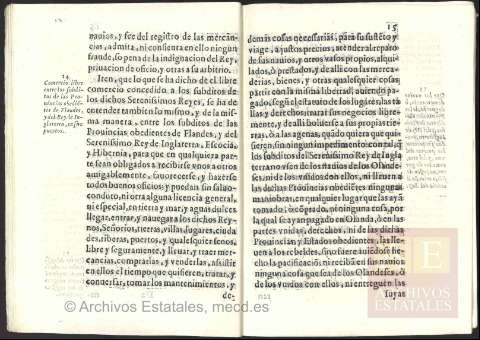 nauios, y fee del registro de las mercãn-
cias, admita, ni consienta en ello ningun
fraude, so pena de la indignacion del Rey,
priuacion de oficio, y otras a su arbitrio.
14
Comercio libre
entre los subdi-
tos de las Pro-
uincias obediẽ-
tes de Flandes,
y del Rey de In-
glaterra, en sus
puertos.
Iten, que lo que se ha dicho de el libre
comercio concedido a los subditos de
los dichos Serenissimos Reyes, se ha de
entender tambien lo mismo, y de la mis-
ma manera, entre los subditos de las
Prouincias obedientes de Flandes, y del
Serenissimo Rey de Inglaterra, Escocia,
y Hibernia, para que en qualquiera parte
sean obligados a recibirse vnos a otros
amigablemente, fauorecerse, y hazerse
todos buenos oficios; y puedan sin saluo-
conduto, ni otra alguna licencia general,
ni especial, en tierra y mar, y aguas dulces
llegar, entrar, y nauegar a los dichos Rey-
nos, Señorios, tierras, villas, lugares, ciuda-
des, riberas, puertos, y qualesquier senos,
libre y seguramente, y lleuar, y traer mer-
cancias, comprarlas, y venderlas, y assistir
en ellos el tiempo que quisieren, tratar, y
conuersar, tomar los mantenimientos, y
de-
15
demas cosas necessarias, para su sustẽto y
viage, a justos precios, atender al reparo
de sus nauios, y otros vasos propios, alqui-
lados, ò prestados, y de alli con las merca-
derias, bienes, y otras qualesquier cosas
partir con la misma libertad, auiendo pa-
gado, segũ el estatuto de los lugares, las ta-
llas y derechos, y tratar sus negocios libre-
mente, y de alli boluerse a sus propias tier-
ras, ò a las agenas, quãdo quiera que qui-
sieren, sin ningun impedimento, con tal, q̃
los subditos del Serenissimo Rey de Ingla-
terra no vsen de los nauios de los Olande-
ses, ni de los vnidos con ellos, ni lleuen de
las dichas Prouincias obediẽtes ningunas
maniobras, en qualquier lugar que las ayã
tomado, ò cõprado, ni ninguna cosa, por
la qual se aya pagado en Olanda, ò en las
partes vnidas, derechos, ni de las dichas
Prouincias, y Estados obedientes, las lle-
uen a los rebeldes, sino fuere auiẽdose he-
cho la pacificaciõ; ni reciban en sus nauios
ninguna cosa que sea de los Olandeses, ò
de los vnidos con ellos, ni entreguẽ las
suyas
© Archivos Estatales, mecd.es
E
ARCHIVOS
ESTATALES